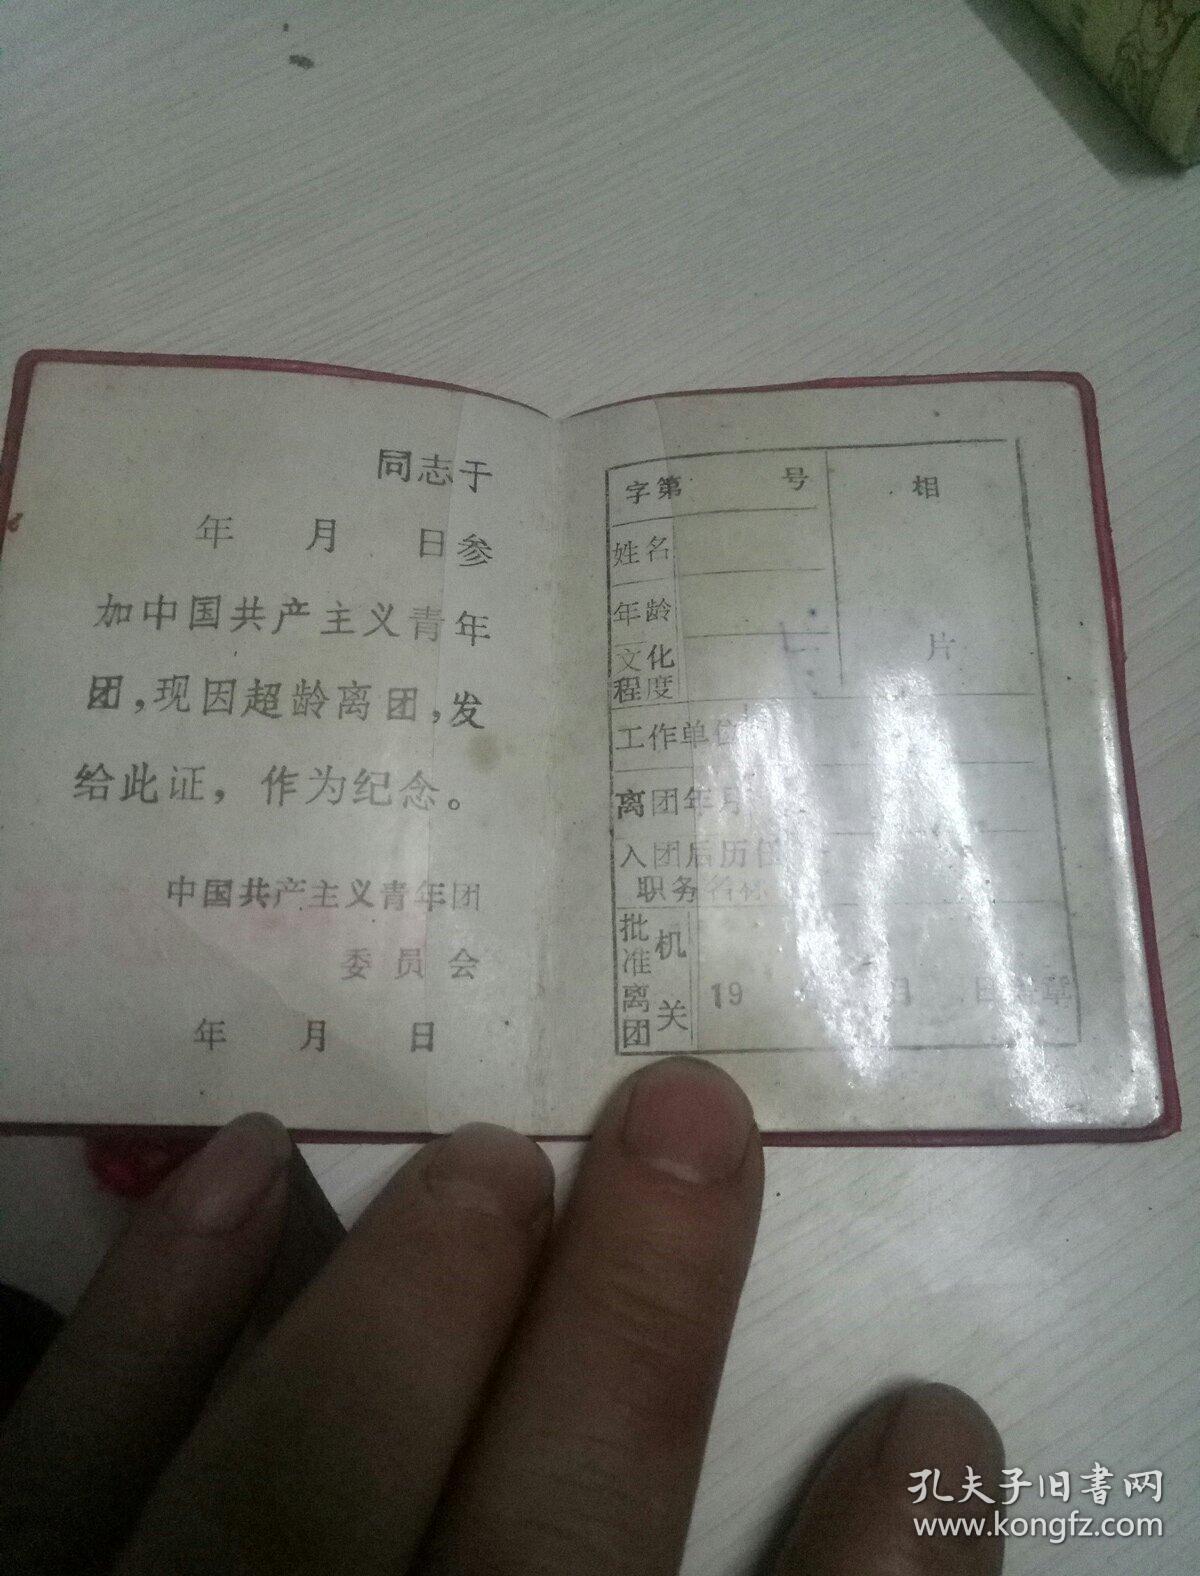 同志于
年 月 日参
加中国共产主义青年
团，现因超龄离团，发
给此证，作为纪念。
中国共产主义青年团
委员会
年 月 日
字第 号
相
片
姓名
年龄
文化
程度
工作单位
离团年月
入团后历任
职务名称
批准离团
机关
19 月 日
孔夫子旧书网
www.kongfz.com